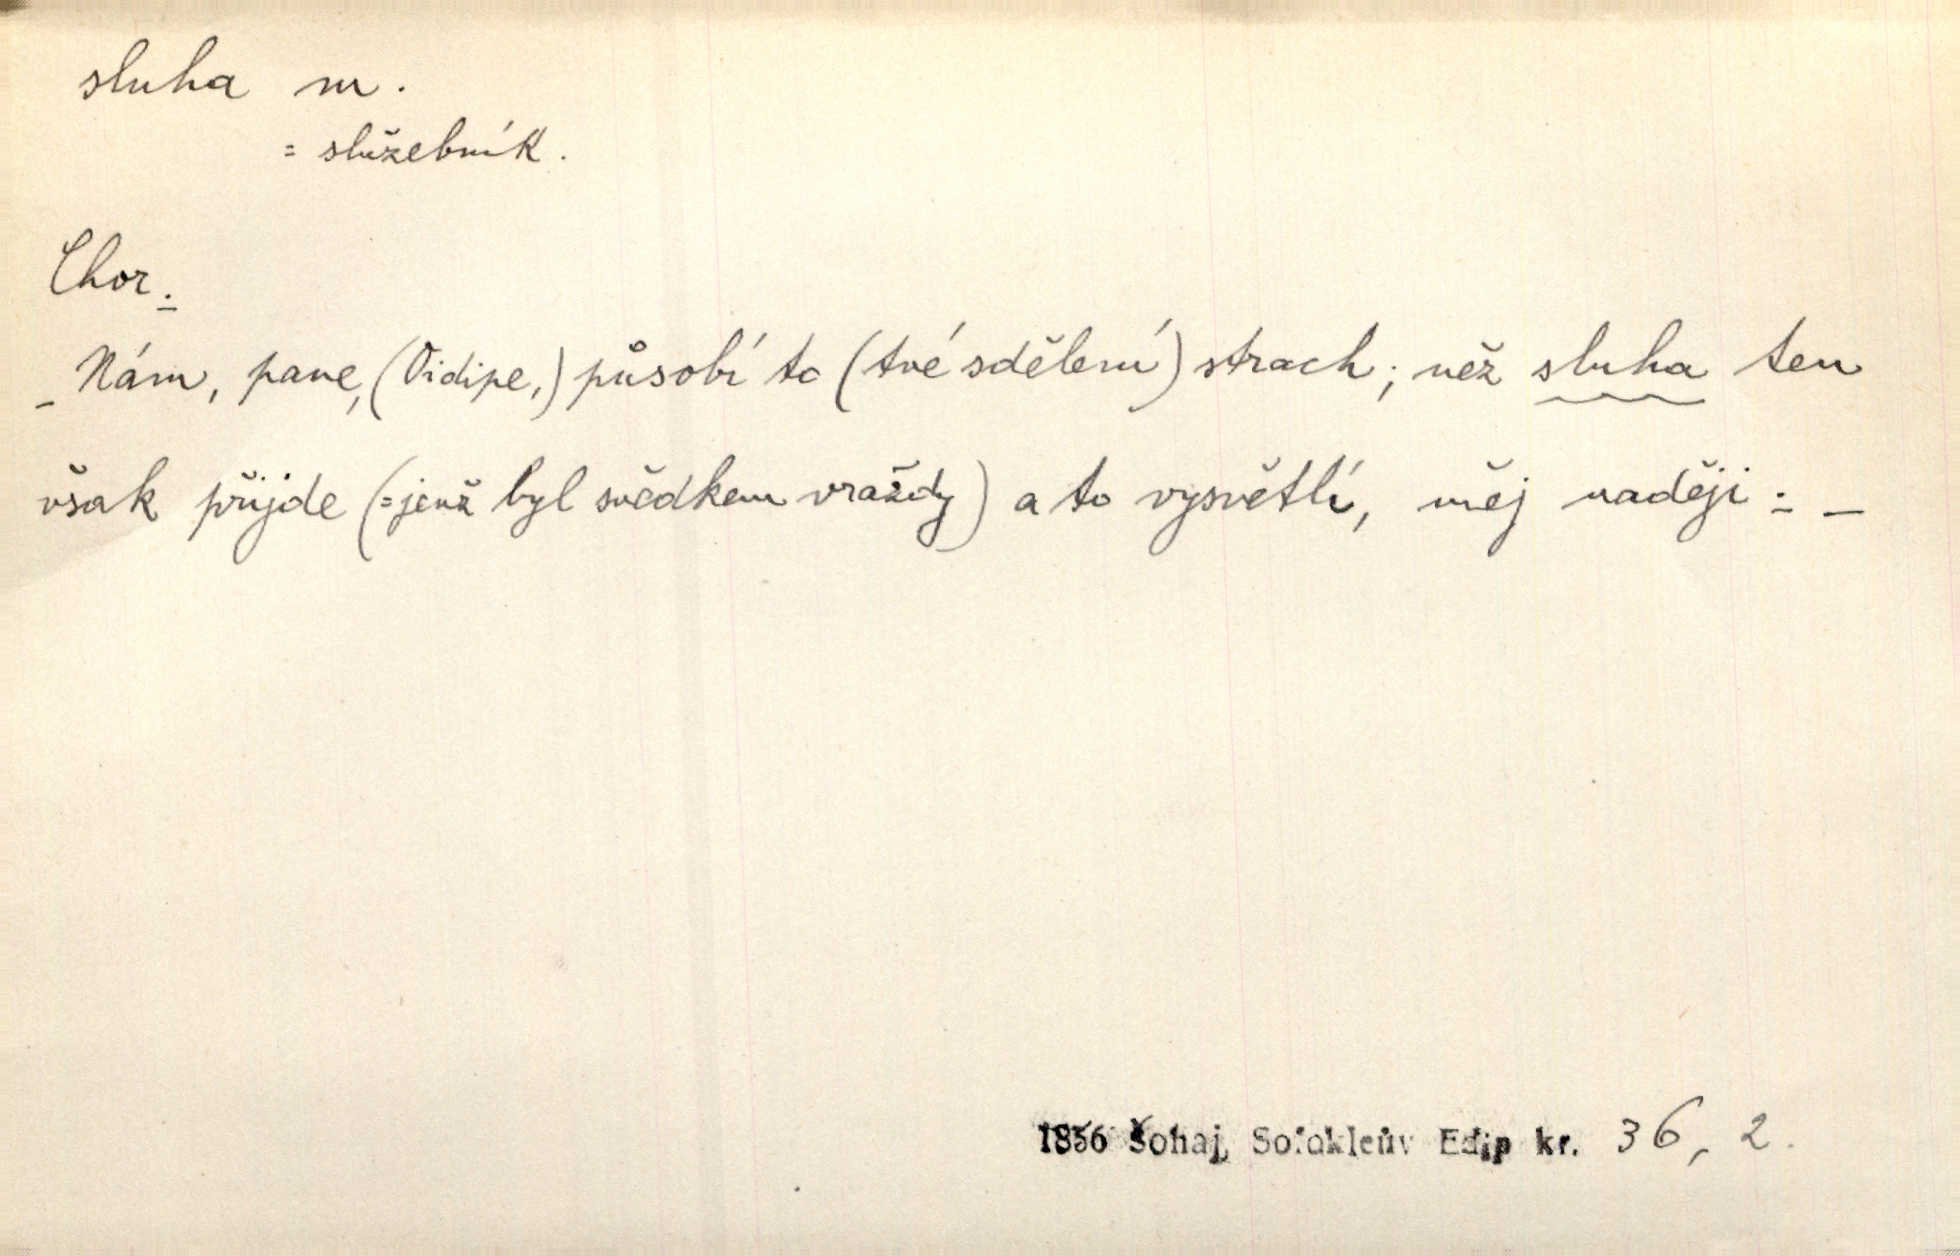 sluha m.
= služebník.
Chor.
_ Nám, pane, (Oidipe,) působí to (tvé sdělení) strach; něž sluha ten
však přijde (=jenž byl svědkem vraždy) a to vysvětlí, měj naději: _
1856 Šohaj, Sofokleův Edip kr. 36, 2.